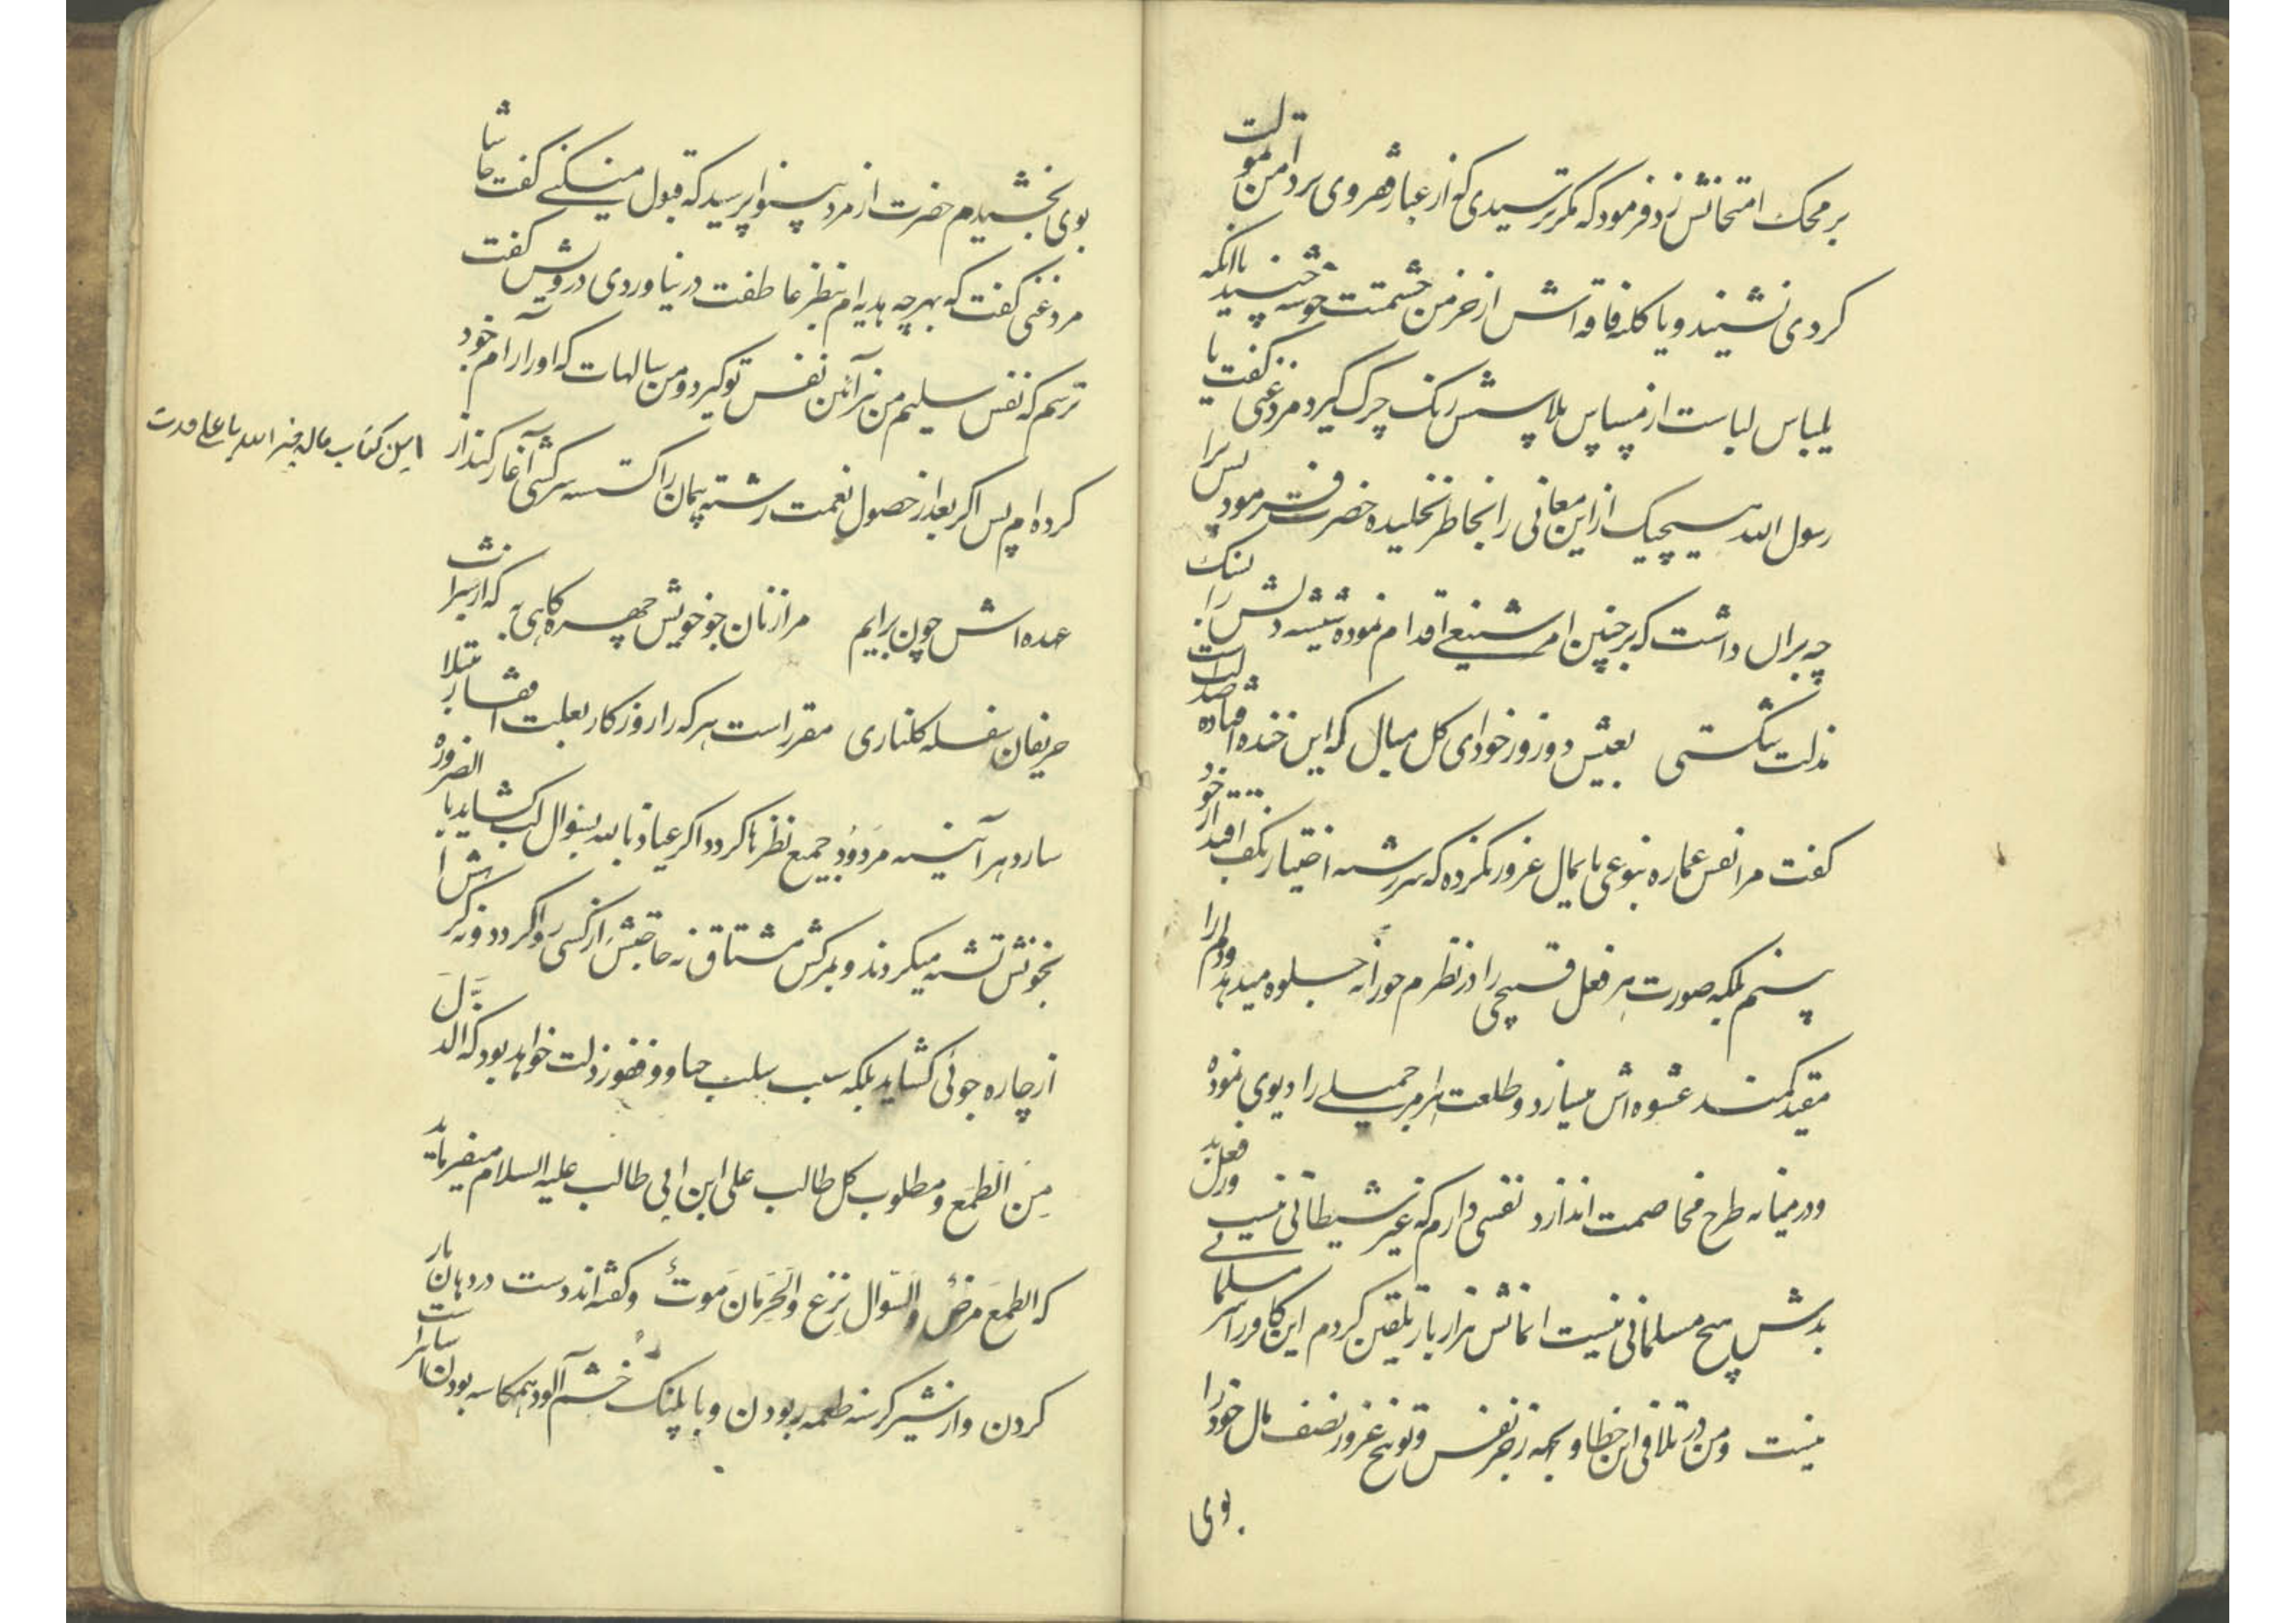 بر محک امتحانش زد فرمود که مگر ترسیدی که از غبار فقر وی بر دامن تمولت
کردی نشیند و یا کله فاقه اش از خرمن حشمتت خوشه چیند با آنکه
بلباس لباست از مساس پلاسش رنک چرک کیرد مرد غنی کفت یا
رسول الله هیچیک از این معانی را بخاطر نخلیده حضرت فرمود پس ترا
چه بر ان داشت که بر چنین امر شنیعی اقدام نموده شیشه دلش را بسنک
مذلت شکستی بعیش دوروزه خود ای کل مبال که این خنده افتاده است
کفت مرا نفس عماره بنوعی پایمال غرور نکرده که سر رشته اختیار بکف اقتدار خود
بینم بلکه صورت هر فعل قبیحی را در نظرم حورانه جلوه میدهد و دلم را
مقید کمند عشوه اش میسازد و طلعت هر امر جمیلی را دیوی نموده
و در میانه طرح مخاصمت اندازد نفسی دارم که غیر شیطانی نیست وز فعل بد
بدش هیچ مسلمانی نیست ایمانش هزار بار تلقین کردم این کافر را سر مسلمانی
نیست و من در تلافی این خطا و بجهة زجر نفس و توبیخ غرور نصف مال خود را
بوی
بوی بخشیدم حضرت از مرد بینوا پرسید که قبول میکنی کفت حاشا
مرد غنی کفت که بهر چه هدیه ام بنظر عاطفت در نیاوردی درویش کفت
ترسم که نفس سلیم من نیز آئین نفس تو کیرد و من سالهات که او را رام خود
کرده ام پس اکر بعد از حصول نعمت رشته پیمان را کسسته سرکشی آغاز کند از
این کتاب مال
عهده اش چون برایم مرا از نان جو خویش چهره کاهی به که از شراب
حریفان سفله کلناری مقرر است هر که را روزکار بعلت افتقار مبتلا
سازد هر آینه مردود جمیع نظرها کردد اکر عیاذ بالله بسؤال لب کشاید بالضرورة
بخونش تشنه میکردند و بمرکش مشتاق نه حاجتش از کسی روا کردد و نه کرهش
از چاره جوئی کشاید بلکه سبب سلب حیا و وفور ذلت خواهد بود که الذل
من الطمع و مطلوب کل طالب علی ابن ابی طالب علیه السلام میفرماید
که الطمع مرض والسؤال نزع والحرمان موت و کفته اند دست در دهان مار
کردن و از شیر کرسنه طعمه ربودن و با پلنک خشم آلود همکاسه بودن